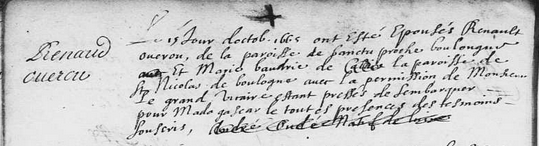 Le 15 Jour doctob. 1665 ont Esté Epousés Renault
Renaud
ouerou, de la paroisse de sanctu proche boulongne
Et Marie baudrie de la paroisse de
St Nicolas de boulogne avec la permission de Monsieur
Le grand vicaire estant presses de sembarquer
pour Madagascar le tout es presences des tesmoins
souscris,